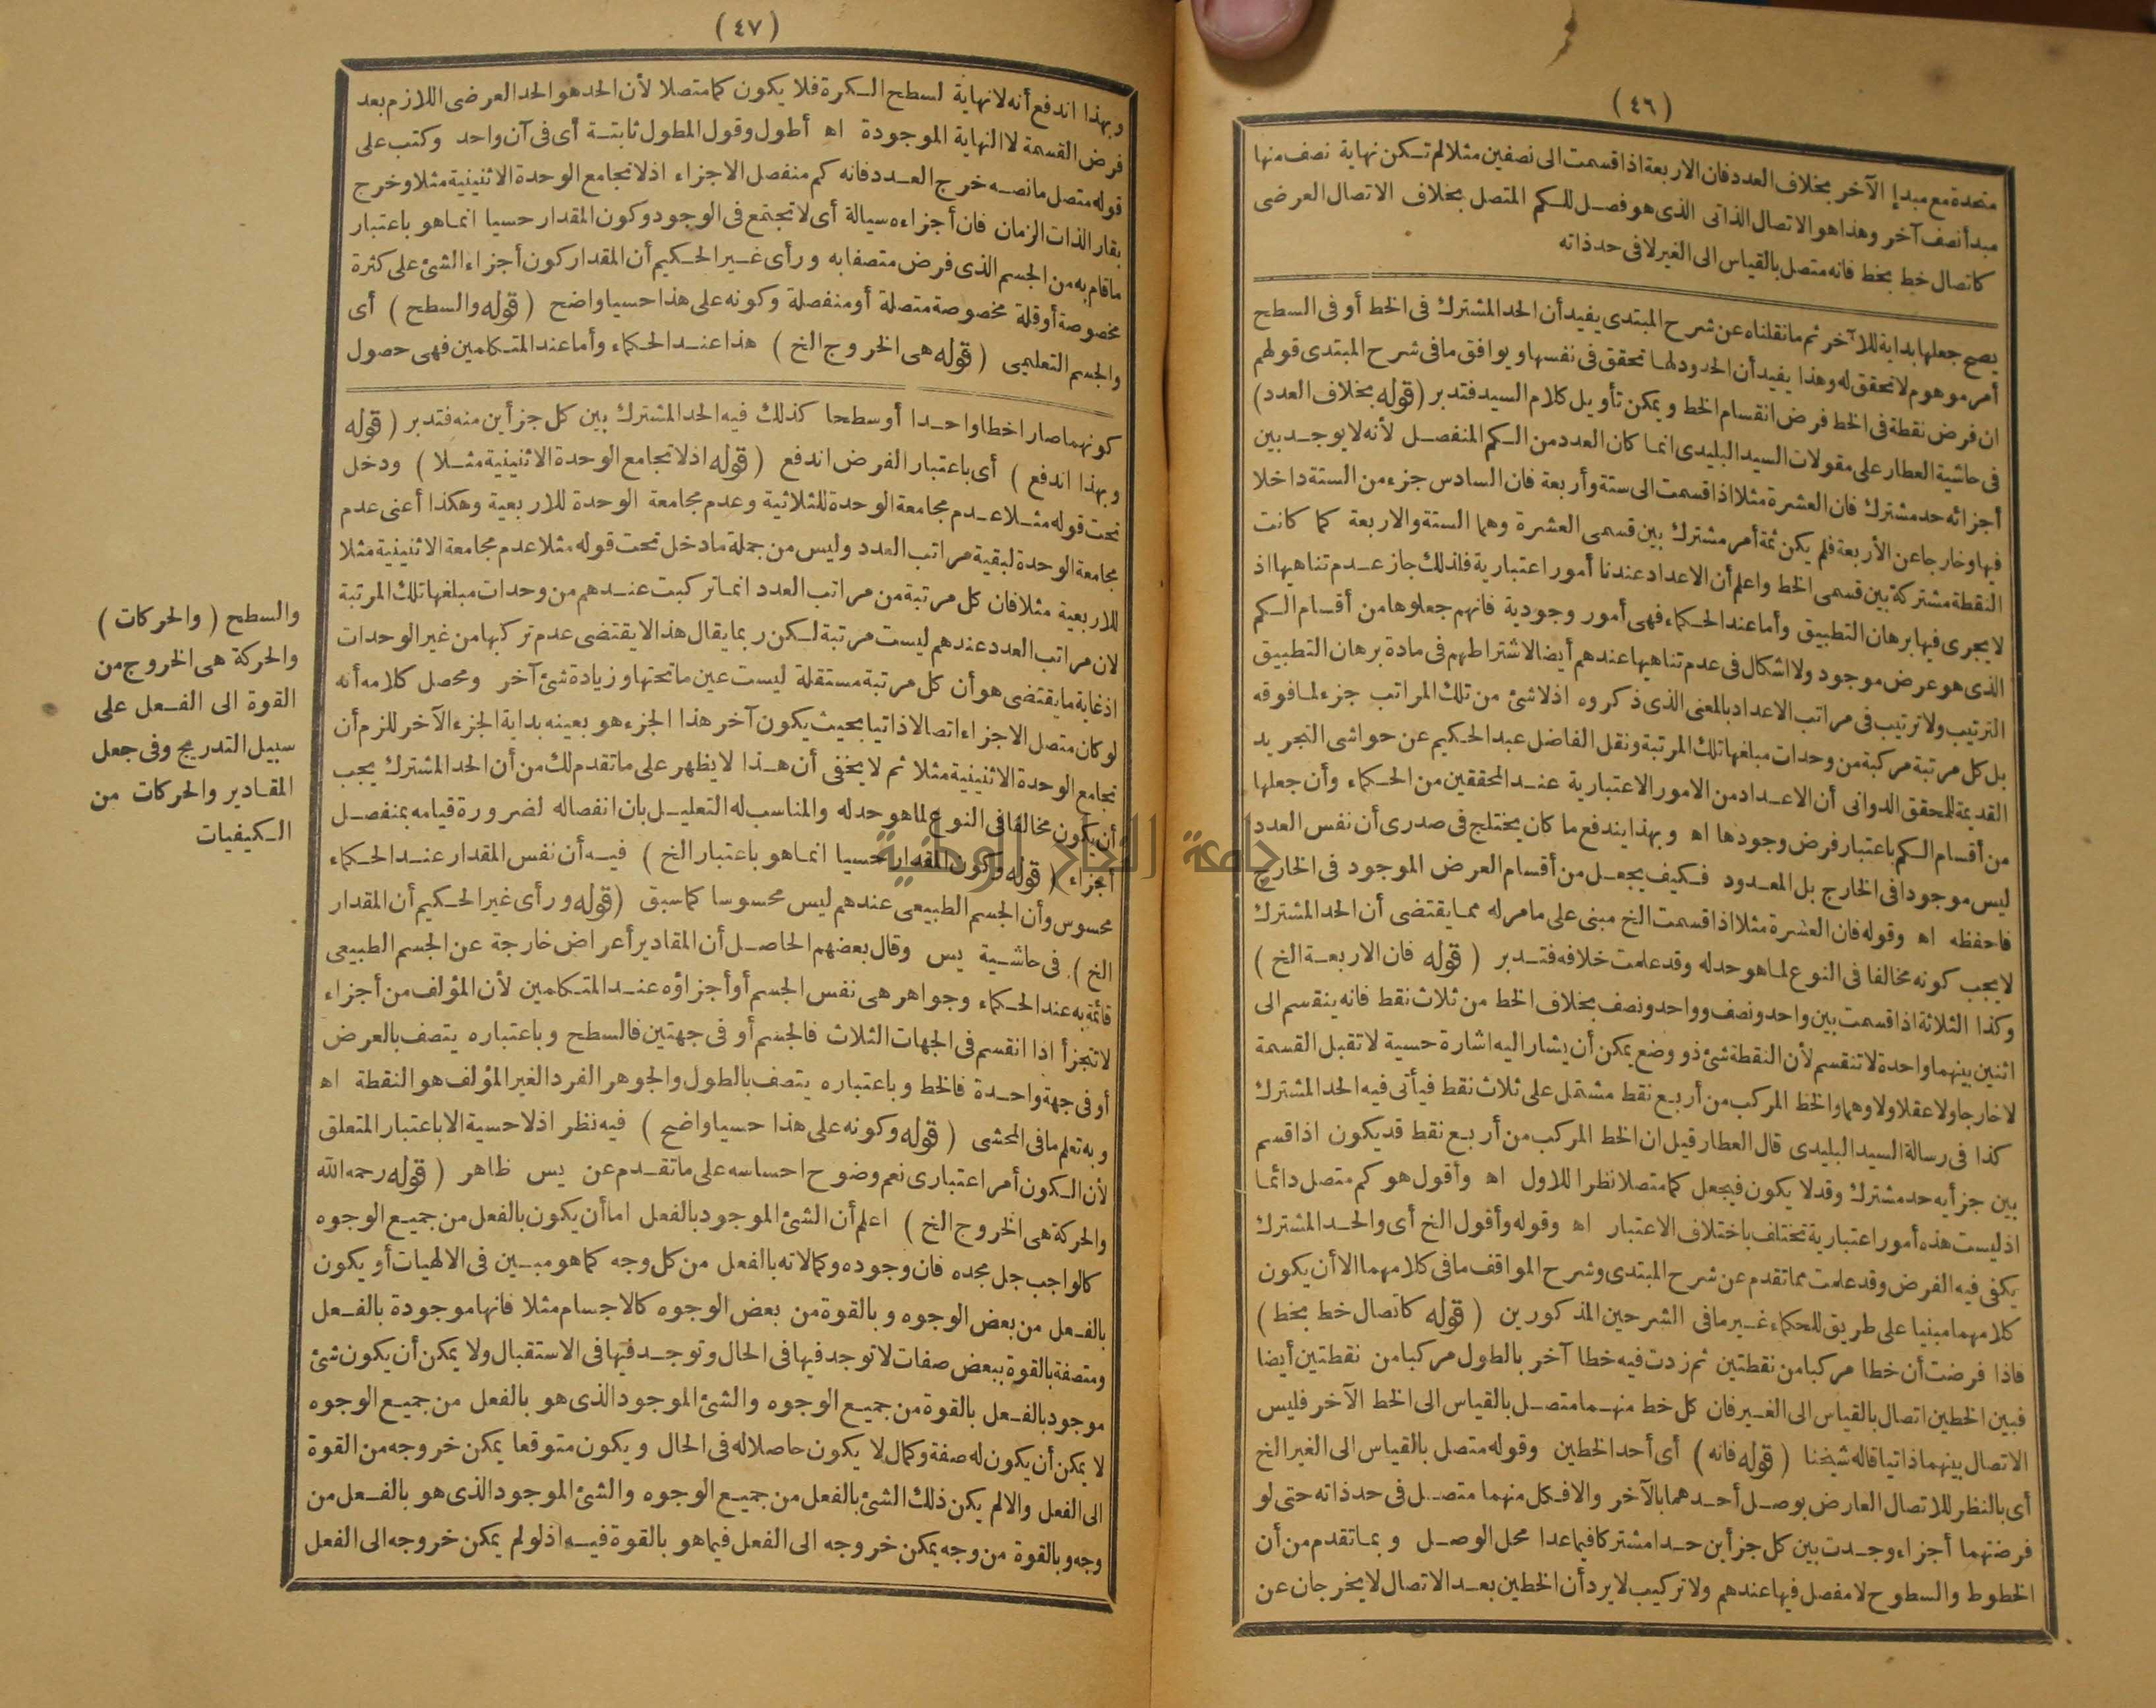 (٤٦)
متحدة مع مبدإ الآخر بخلاف العدد فان الاربعة اذا قسمت الى نصفين مثلا لم تكن نهاية نصف منها
مبدأ نصف آخر وهذا هو الاتصال الذاتى الذى هو فصل للكم المتصل بخلاف الاتصال العرضى
كاتصال خط بخط فانه متصل بالقياس الى الغير لا فى حد ذاته
يصح جعلها بداية للآخر ثم ما نقلناه عن شرح المبتدى يفيد أن الحد المشترك فى الخط أو فى السطح
أمر موهوم لا تحقق له وهذا يفيد أن الحدود لها تحقق فى نفسها ويوافق ما فى شرح المبتدى قولهم
ان فرض نقطة فى الخط فرض انقسام الخط ويمكن تأويل كلام السيد فتدبر (قوله بخلاف العدد)
فى حاشية العطار على مقولات السيد البليدى انما كان العدد من الكم المنفصل لأنه لا يوجد بين
أجزائه حد مشترك فان العشرة مثلا اذا قسمت الى ستة وأربعة فان السادس جزء من الستة داخلا
فيها وخارجا عن الأربعة فلم يكن ثمة أمر مشترك بين قسمى العشرة وهما الستة والاربعة كما كانت
النقطة مشتركة بين قسمى الخط واعلم أن الاعداد عندنا أمور اعتبارية فلذلك جاز عدم تناهيها اذ
لا يجرى فيها برهان التطبيق وأما عند الحكماء فهى أمور وجودية فانهم جعلوها من أقسام الكم
الذى هو عرض موجود ولا اشكال فى عدم تناهيها عندهم أيضا لاشتراطهم فى مادة برهان التطبيق
الترتيب ولا ترتيب فى مراتب الاعداد بالمعنى الذى ذكروه اذ لا شئ من تلك المراتب جزء لما فوقه
بل كل مرتبة مركبة من وحدات مبلغها تلك المرتبة ونقل الفاضل عبد الحكيم عن حواشى التجريد
القديمة للمحقق الدوانى أن الاعداد من الامور الاعتبارية عند المحققين من الحكماء وأن جعلها
من أقسام الكم باعتبار فرض وجودها اه وبهذا يندفع ما كان يختلج فى صدرى أن نفس العدد
ليس موجودا فى الخارج بل المعدود فكيف يجعل من أقسام العرض الموجود فى الخارج
فاحفظه اه وقوله فان العشرة مثلا اذا قسمت الخ مبنى على ما مر له مما يقتضى أن الحد المشترك
لا يجب كونه مخالفا فى النوع لما هو حد له وقد علمت خلافه فتدبر (قوله فان الاربعة الخ)
وكذا الثلاثة اذا قسمت بين واحد ونصف وواحد ونصف بخلاف الخط من ثلاث نقط فانه ينقسم الى
اثنين بينهما واحدة لا تنقسم لأن النقطة شئ ذو وضع يمكن أن يشار اليه اشارة حسية لا تقبل القسمة
لا خارجا ولا عقلا ولا وهما والخط المركب من أربع نقط مشتمل على ثلاث نقط فيأتى فيه الحد المشترك
كذا فى رسالة السيد البليدى قال العطار قيل ان الخط المركب من أربع نقط قد يكون اذا قسم
بين جزأيه حد مشترك وقد لا يكون فيجعل كما متصلا نظرا للاول اه وأقول هو كم متصل دائما
اذ ليست هذه أمور اعتبارية تختلف باختلاف الاعتبار اه وقوله وأقول الخ أى والحد المشترك
يكفى فيه الفرض وقد علمت مما تقدم عن شرح المبتدى وشرح المواقف ما فى كلامهما الا أن يكون
كلامهما مبنيا على طريق للحكماء غير ما فى الشرحين المذكورين (قوله كاتصال خط بخط)
فاذا فرضت أن خطا مركبا من نقطتين ثم زدت فيه خطا آخر بالطول مركبا من نقطتين أيضا
فبين الخطين اتصال بالقياس الى الغير فان كل خط منهما متصل بالقياس الى الخط الآخر فليس
الاتصال بينهما ذاتيا قاله شيخنا (قوله فانه) أى أحد الخطين وقوله متصل بالقياس الى الغير الخ
أى بالنظر للاتصال العارض بوصل أحدهما بالآخر والا فكل منهما متصل فى حد ذاته حتى لو
فرضتهما أجزاء وجدت بين كل جزأين حدا مشتركا فيما عدا محل الوصل وبما تقدم من أن
الخطوط والسطوح لا مفصل فيها عندهم ولا تركيب لا يرد أن الخطين بعد الاتصال لا يخرجان عن
(٤٧)
وبهذا اندفع أنه لا نهاية لسطح الكرة فلا يكون كما متصلا لأن الحد هو الحد العرضى اللازم بعد
فرض القسمة لا النهاية الموجودة اه أطول وقول المطول ثابتة أى فى آن واحد وكتب على
قوله متصل ما نصه خرج العدد فانه كم منفصل الاجزاء اذ لا تجامع الوحدة الاثنينية مثلا وخرج
بقار الذات الزمان فان أجزاءه سيالة أى لا تجتمع فى الوجود وكون المقدار حسيا انما هو باعتبار
ما قام به من الجسم الذى فرض متصفا به ورأى غير الحكيم أن المقدار كون أجزاء الشئ على كثرة
مخصوصة أو قلة مخصوصة متصلة أو منفصلة وكونه على هذا حسيا واضح (قوله والسطح) أى
والجسم التعليمى (قوله هى الخروج الخ) هذا عند الحكماء وأما عند المتكلمين فهى حصول
كونهما صارا خطا واحدا أو سطحا كذلك فيه الحد المشترك بين كل جزأين منه فتدبر (قوله
وبهذا اندفع) أى باعتبار الفرض اندفع (قوله اذ لا تجامع الوحدة الاثنينية مثلا) ودخل
تحت قوله مثلا عدم مجامعة الوحدة للثلاثية وعدم مجامعة الوحدة للاربعية وهكذا أعنى عدم
مجامعة الوحدة لبقية مراتب العدد وليس من جملة ما دخل تحت قوله مثلا عدم مجامعة الاثنينية مثلا
للاربعية مثلا فان كل مرتبة من مراتب العدد انما تركبت عندهم من وحدات مبلغها تلك المرتبة
لان مراتب العدد عندهم ليست مرتبة لكن ربما يقال هذا لا يقتضى عدم تركبها من غير الوحدات
اذ غاية ما يقتضى هو أن كل مرتبة مستقلة ليست عين ما تحتها وزيادة شئ آخر ومحصل كلامه أنه
لو كان متصل الاجزاء اتصالا ذاتيا بحيث يكون آخر هذا الجزء هو بعينه بداية الجزء الآخر للزم أن
تجامع الوحدة الاثنينية مثلا ثم لا يخفى أن هذا لا يظهر على ما تقدم لك من أن الحد المشترك يجب
أن يكون مخالفا فى النوع لما هو حد له والمناسب له التعليل بان انفصاله لضرورة قيامه بمنفصل
أجزاء (قوله وكون المقدار حسيا انما هو باعتبار الخ) فيه أن نفس المقدار عند الحكماء
محسوس وأن الجسم الطبيعى عندهم ليس محسوسا كما سبق (قوله ورأى غير الحكيم أن المقدار
الخ) فى حاشية يس وقال بعضهم الحاصل أن المقادير أعراض خارجة عن الجسم الطبيعى
قائمة به عند الحكماء وجواهر هى نفس الجسم أو أجزاؤه عند المتكلمين لأن المؤلف من أجزاء
لا تتجزأ اذا انقسم فى الجهات الثلاث فالجسم أو فى جهتين فالسطح وباعتباره يتصف بالعرض
أو فى جهة واحدة فالخط وباعتباره يتصف بالطول والجوهر الفرد الغير المؤلف هو النقطة اه
وبه تعلم ما فى المحشى (قوله وكونه على هذا حسيا واضح) فيه نظر اذ لا حسية الا باعتبار المتعلق
لأن الكون أمر اعتبارى نعم وضوح احساسه على ما تقدم عن يس ظاهر (قوله رحمه الله
والحركة هى الخروج الخ) اعلم أن الشئ الموجود بالفعل اما أن يكون بالفعل من جميع الوجوه
كالواجب جل مجده فان وجوده وكمالاته بالفعل من كل وجه كما هو مبين فى الالهيات أو يكون
بالفعل من بعض الوجوه وبالقوة من بعض الوجوه كالاجسام مثلا فانها موجودة بالفعل
ومتصفة بالقوة ببعض صفات لا توجد فيها فى الحال وتوجد فيها فى الاستقبال ولا يمكن أن يكون شئ
موجود بالفعل بالقوة من جميع الوجوه والشئ الموجود الذى هو بالفعل من جميع الوجوه
لا يمكن أن يكون له صفة وكمال لا يكون حاصلا له فى الحال ويكون متوقعا يمكن خروجه من القوة
الى الفعل والا لم يكن ذلك الشئ بالفعل من جميع الوجوه والشئ الموجود الذى هو بالفعل من
وجه وبالقوة من وجه يمكن خروجه الى الفعل فيما هو بالقوة فيه اذ لو لم يمكن خروجه الى الفعل
والسطح (والحركات)
والحركة هى الخروج من
القوة الى الفعل على
سبيل التدريج وفى جعل
المقادير والحركات من
الكيفيات
جامعة النجاح الوطنية